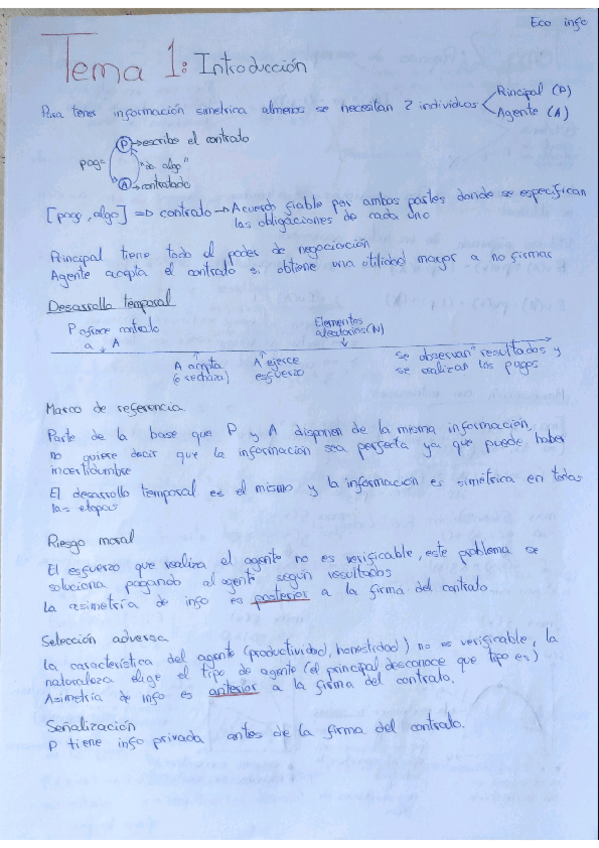 Eco info
Tema 1: Introducción
Para tener información simetrica almenos se necesitan 2 individuos
Principal (P)
Agente (A)
P → escribe el contrato
pago
"de algo"
A → contratado
[pago, algo] => contrato → Acuerdo fiable por ambas partes donde se especifican
las obligaciones de cada uno
Principal tiene todo el poder de negociación
Agente acepta el contrato si obtiene una utilidad mayor a no firmar
Desarrollo temporal
P ofrece contrato
a A
Elementos
aleatorios (N)
A acepta
(o rechaza)
A ejerce
esfuerzo
se observan resultados y
se realizan los pagos
Marco de referencia
Parte de la base que P y A disponen de la misma información,
no quiere decir que la información sea perfecta ya que puede haber
incertidumbre
El desarrollo temporal es el mismo y la información es simétrica en todas
las etapas
Riesgo moral
El esfuerzo que realiza el agente no es verificable, este problema se
soluciona pagando al agente según resultados
La asimetría de info es posterior a la firma del contrato
Selección adversa
La característica del agente (productividad, honestidad) no es verificable, la
naturaleza elige el tipo de agente (el principal desconoce que tipo es)
Asimetría de info es anterior a la firma del contrato.
Señalización
P tiene info privada antes de la firma del contrato.